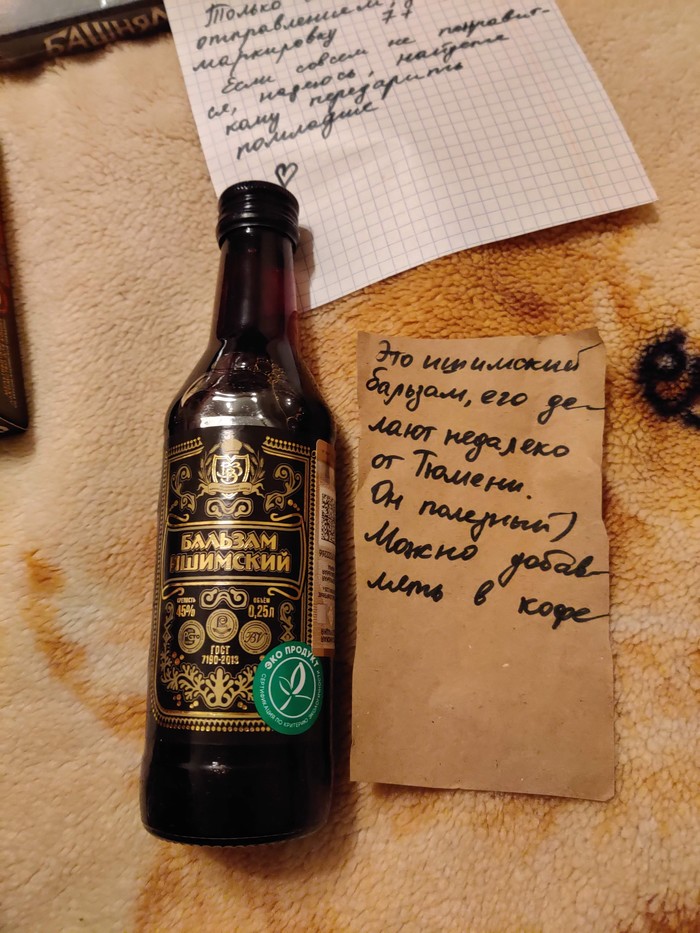 БАШНЯ
Только
отправлением,
маркировку 77
Если совсем не понравит-
ся, надеюсь, найдется
кому передарить
помладше
Это ишимский
бальзам, его де-
лают недалеко
от Тюмени.
Он полезный)
Можно добав-
лять в кофе
БАЛЬЗАМ
ИШИМСКИЙ
КРЕПОСТЬ ОБЪЁМ
45% 0,25л
ГОСТ
7190-2013
ЭКО ПРОДУКТ